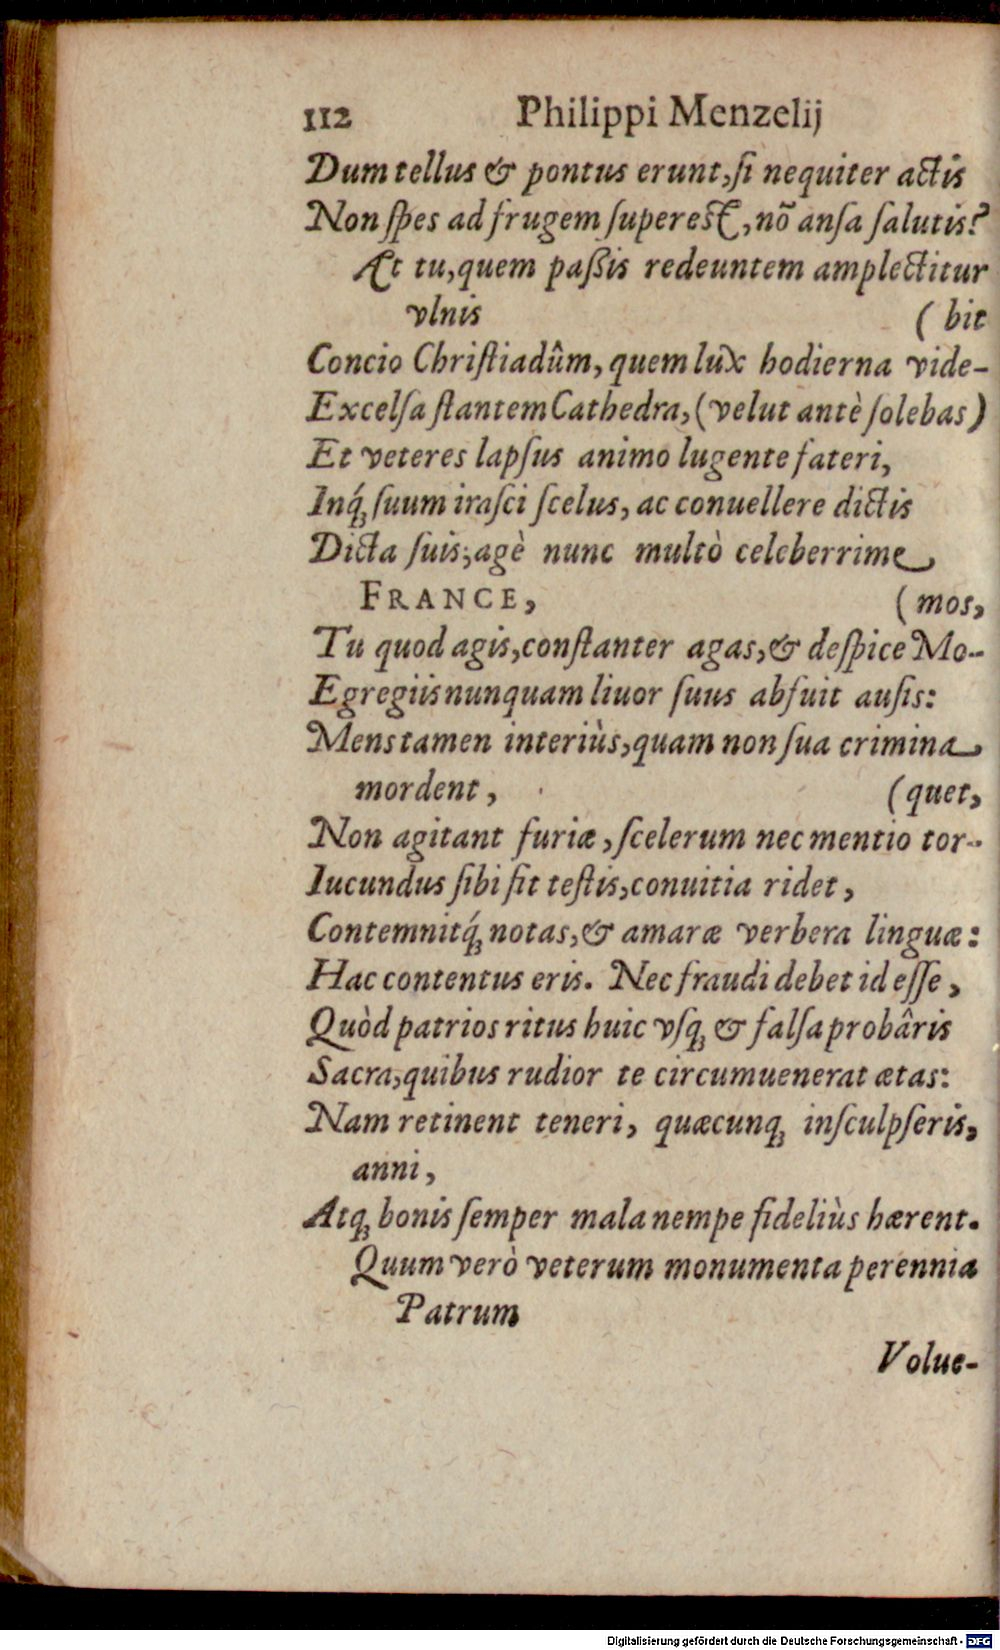 112 Philippi Menzelij
Dum tellus & pontus erunt, ſi nequiter actis
Non ſpes ad frugem ſupereſt, nõ anſa ſalutis?
Æt tu, quem paßis redeuntem amplectitur
vlnis (bit
Concio Chriſtiadûm, quem lux hodierna vide-
Excelſa ſtantem Cathedra, (velut antè ſolebas)
Et veteres lapſus animo lugente fateri,
Inq́; ſuum iraſci ſcelus, ac conuellere dictis
Dicta ſuis; agè nunc multò celeberrime
FRANCE, (mos,
Tu quod agis, conſtanter agas, & deſpice Mo-
Egregiis nunquam liuor ſuus abfuit auſis:
Mens tamen interiùs, quam non ſua crimina
mordent, (quet,
Non agitant furiæ, ſcelerum nec mentio tor-
Iucundus ſibi ſit teſtis, conuitia ridet,
Contemnitq́; notas, & amaræ verbera linguæ:
Hac contentus eris. Nec fraudi debet id eſſe,
Quòd patrios ritus huic vſq; & falſa probâris
Sacra, quibus rudior te circumuenerat ætas:
Nam retinent teneri, quæcunq; inſculpſeris,
anni,
Atq; bonis ſemper mala nempe fideliùs hærent.
Quum verò veterum monumenta perennia
Patrum
Volue-
Digitalisierung gefördert durch die Deutsche Forschungsgemeinschaft - DFG